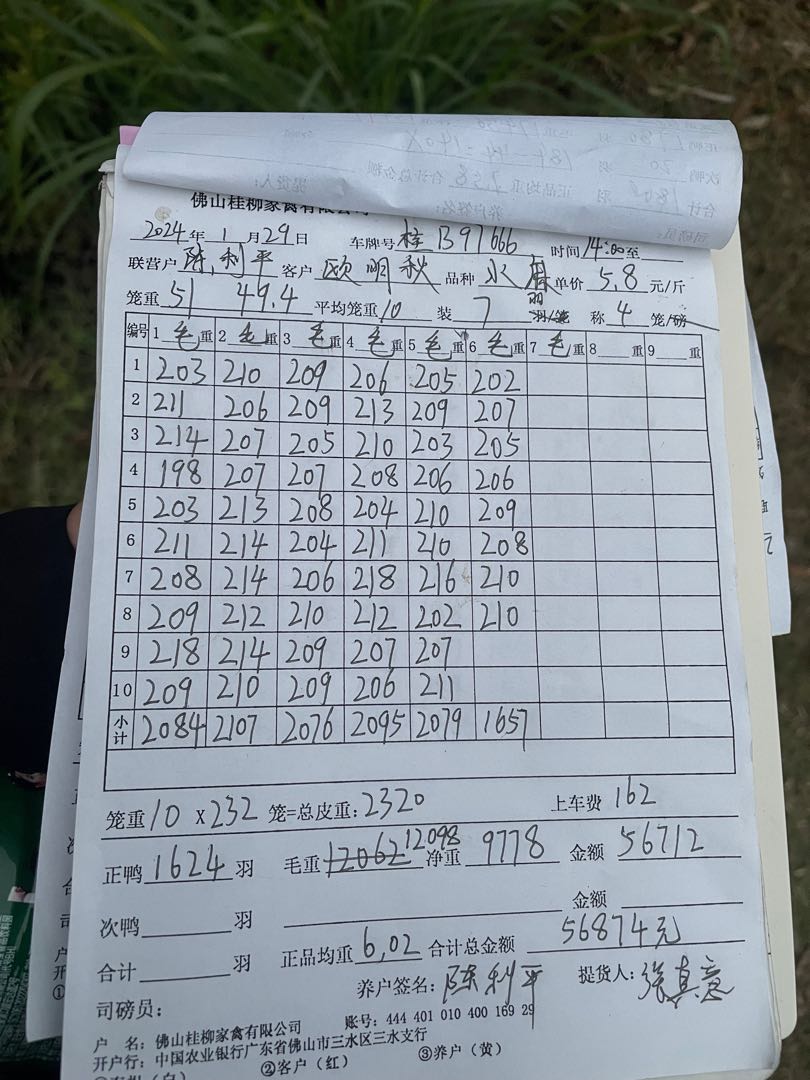 佛山桂柳家禽有限公司
2024年1月29日 车牌号 桂B91666 时间14:00至
联营户 陈利平 客户 欧明秋 品种 水麻 单价 5.8 元/斤
笼重 51 49.4 平均笼重 10 装 7 羽/笼 称 4 笼/磅
编号 1 毛 重 2 毛 重 3 毛 重 4 毛 重 5 毛 重 6 毛 重 7 毛 重 8 重 9 重
1 203 210 209 206 205 202
2 211 206 209 213 209 207
3 214 207 205 210 203 205
4 198 207 207 208 206 206
5 203 213 208 204 210 209
6 211 214 204 211 210 208
7 208 214 206 218 216 210
8 209 212 210 212 202 210
9 218 214 209 207 207
10 209 210 209 206 211
小计 2084 2107 2076 2095 2079 1657
笼重 10 X 232 笼=总皮重: 2320 上车费 162
正鸭 1624 羽 毛重 12062 12098 净重 9778 金额 56712
次鸭 羽 金额
合计 羽 正品均重 6.02 合计总金额 56874元
司磅员: 养户签名: 陈利平 提货人: 张真意
户 名: 佛山桂柳家禽有限公司 账号: 444 401 010 400 169 29
开户行: 中国农业银行广东省佛山市三水区三水支行
②客户(红) ③养户(黄)